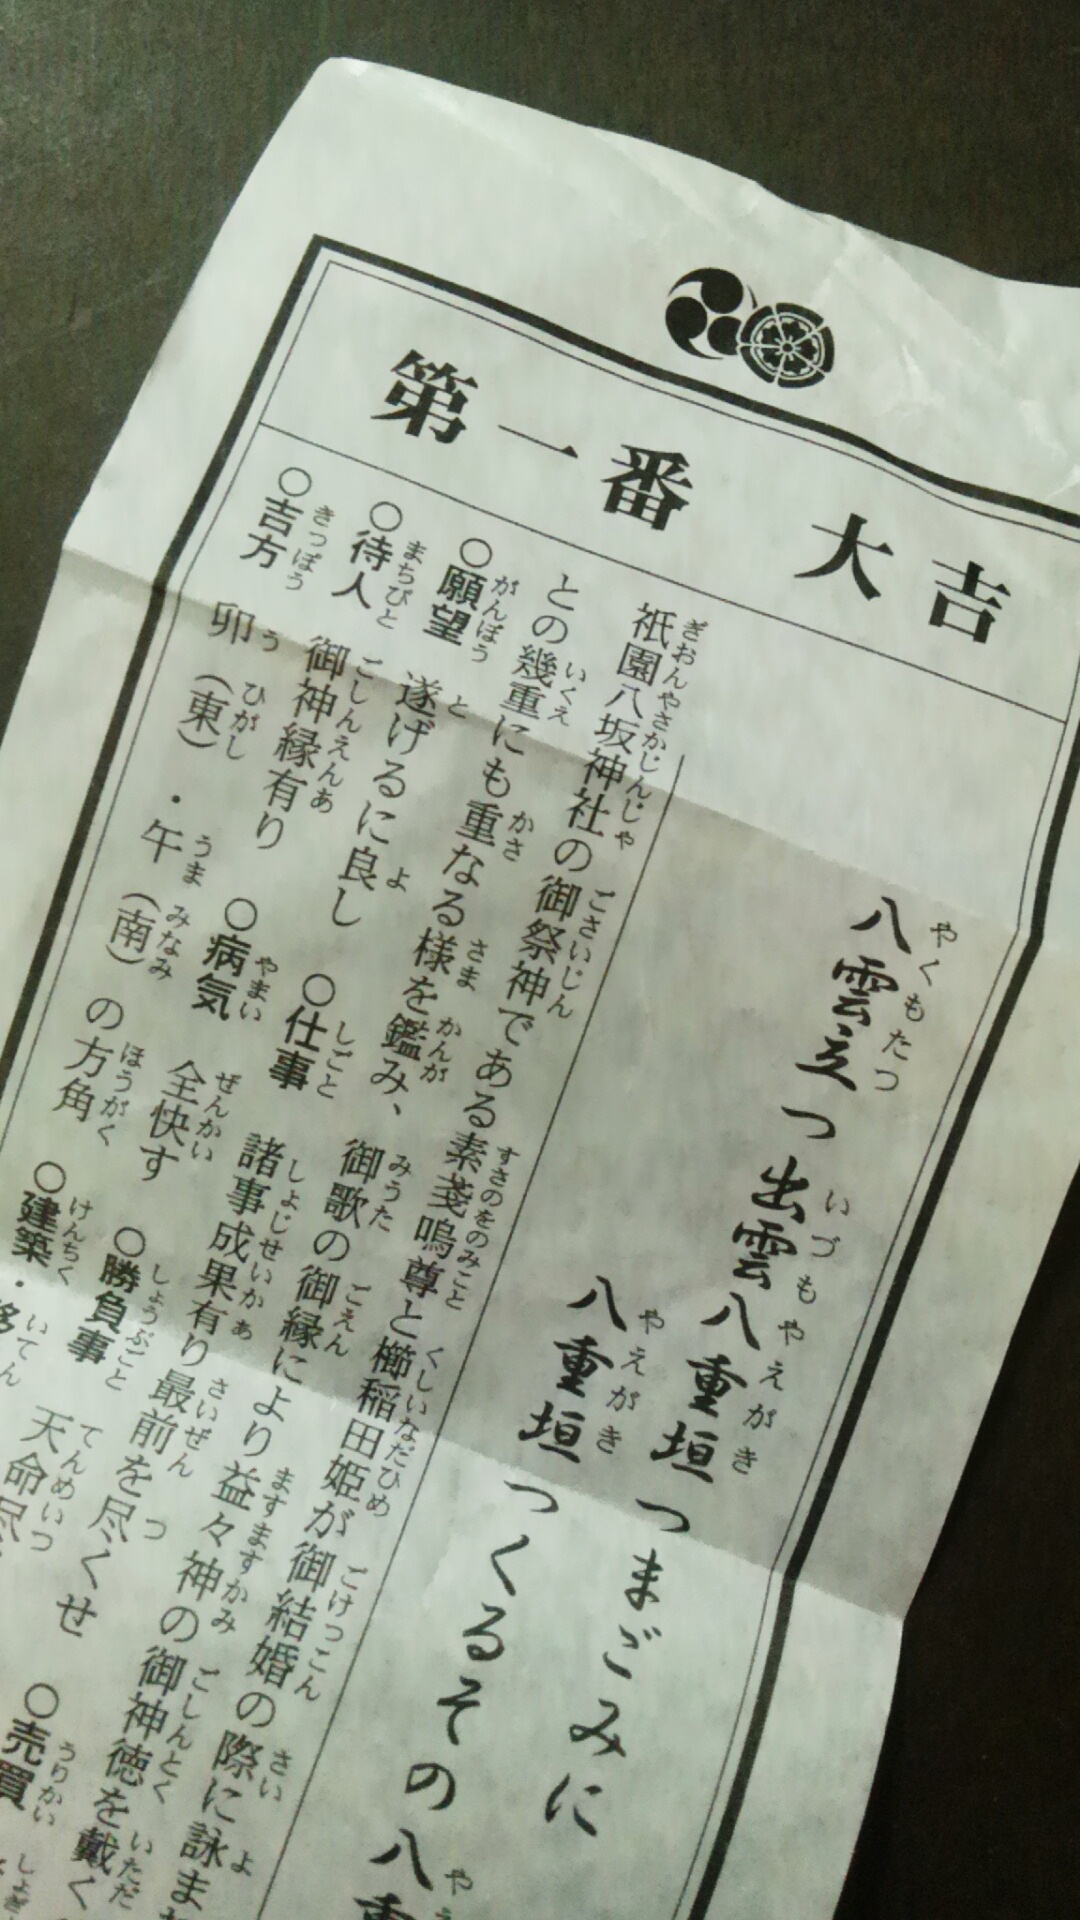 第一番 大吉
八雲立つ出雲八重垣つまごみに
八重垣つくるその八重
祇園八坂神社の御祭神である素戔嗚尊と櫛稲田姫が御結婚の際に詠ま
との幾重にも重なる様を鑑み、御歌の御縁により益々神の御神徳を戴く
○願望 遂げるに良し ○仕事 諸事成果有り最前を尽くせ
○待人 御神縁有り ○病気 全快す ○勝負事 天命尽 ○売買
○吉方 卯（東）・午（南）の方角 ○建築・移